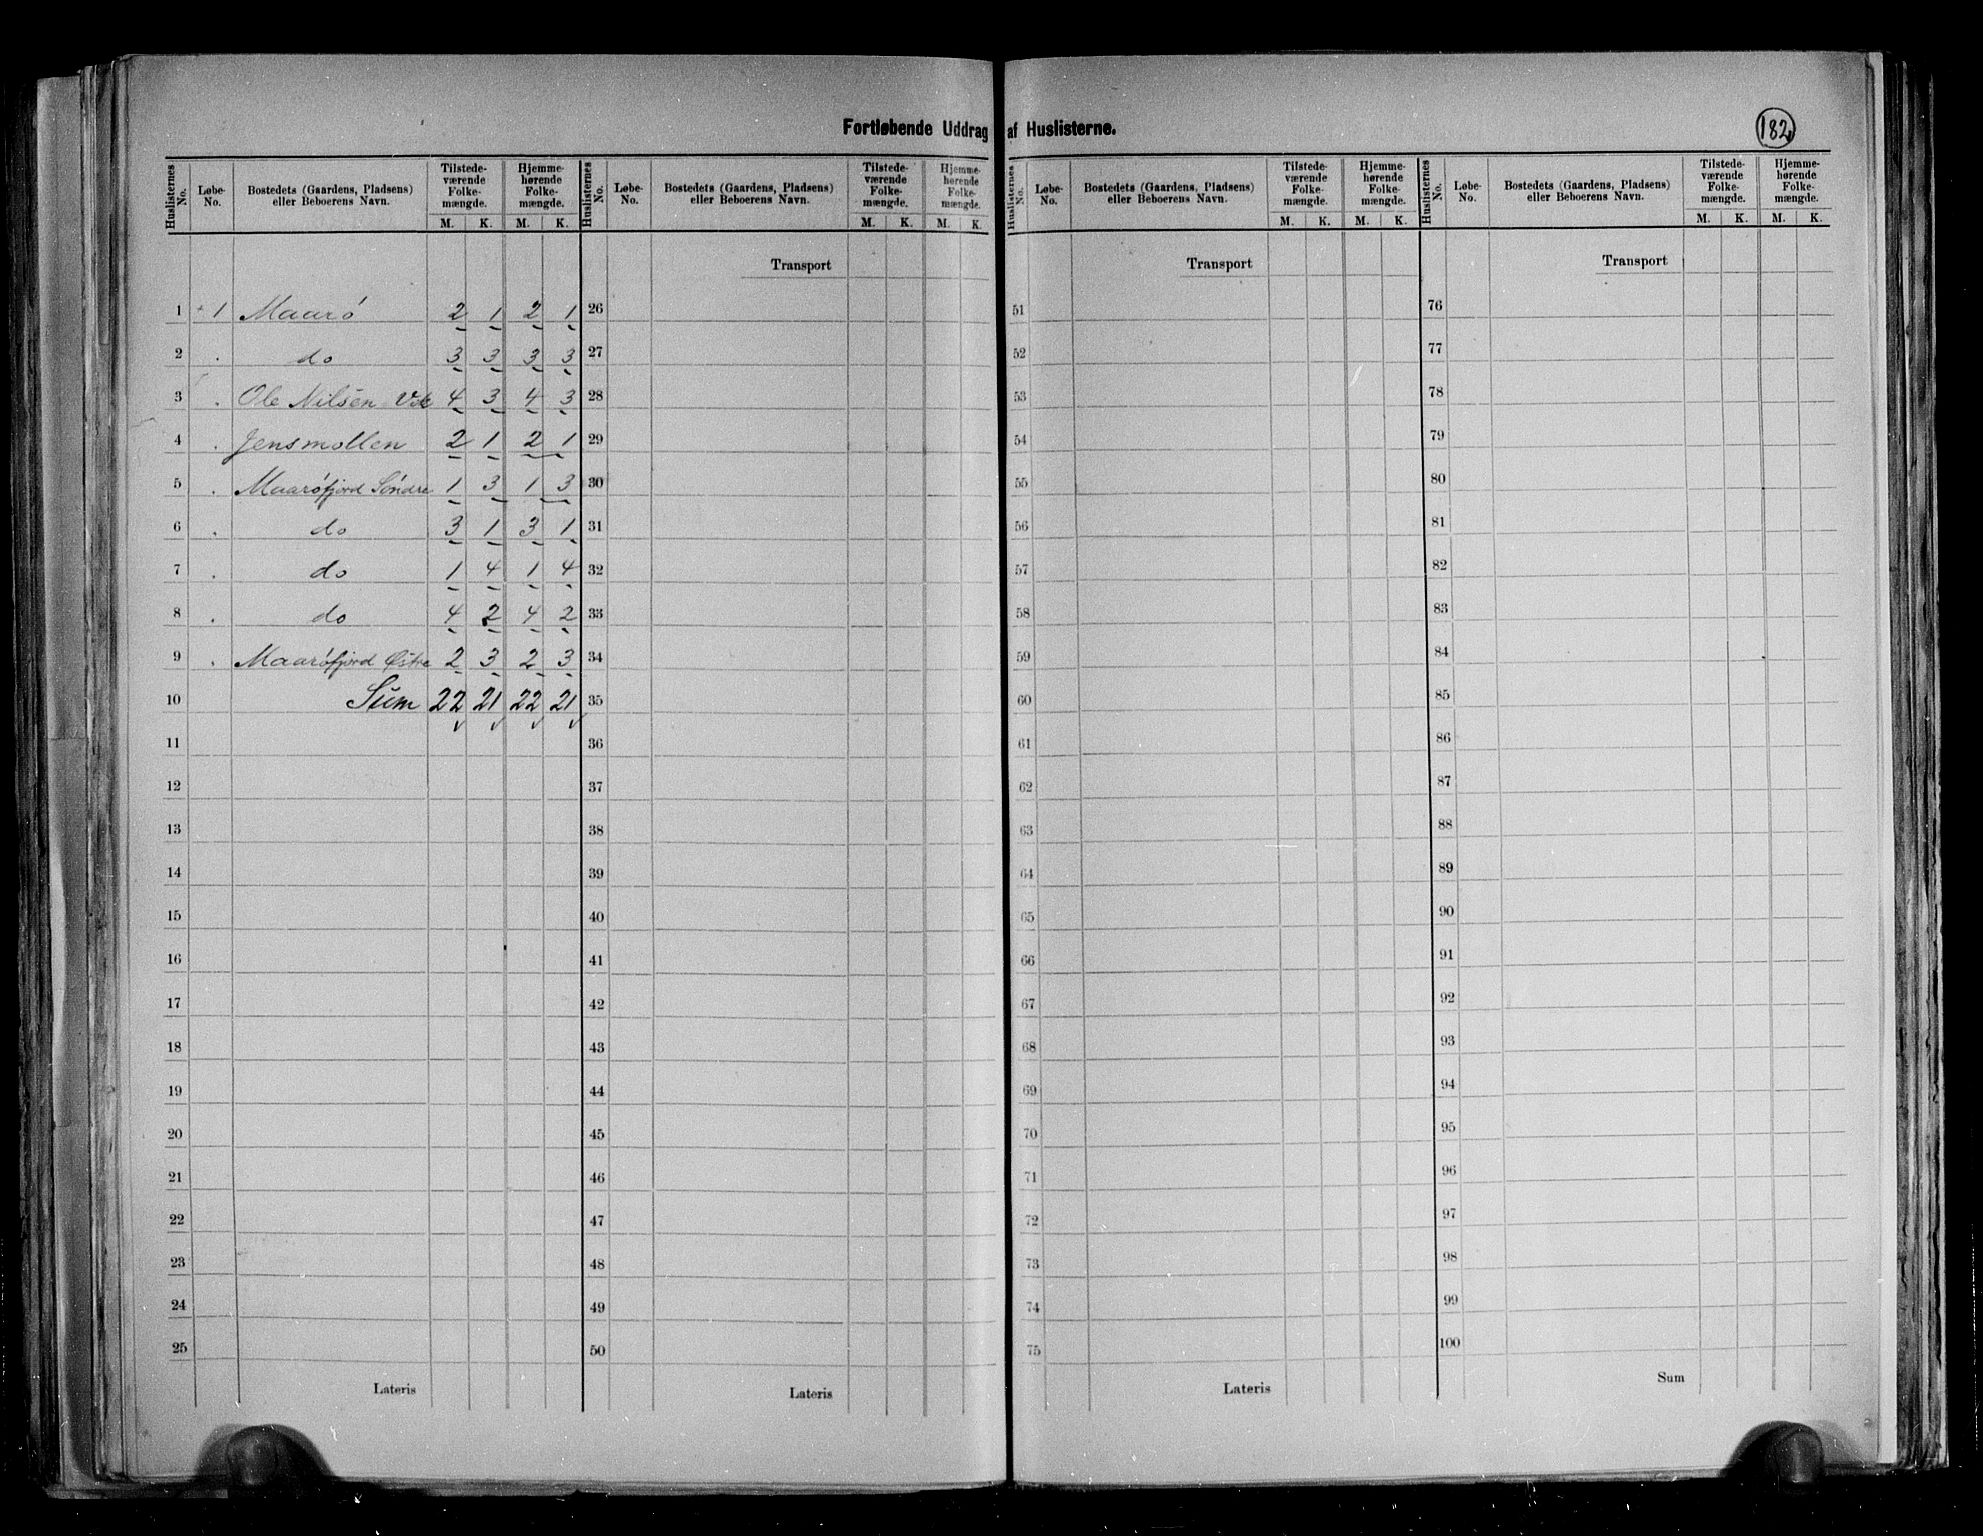 Fortløbende Uddrag af Huslisterne.
182
Huslisternes No. Løbe-No. Bostedets (Gaardens, Pladsens) eller Beboerens Navn. Tilstedeværende Folkemængde. M. K. Hjemmehørende Folkemængde. M. K.
Huslisternes No. Løbe-No. Bostedets (Gaardens, Pladsens) eller Beboerens Navn. Tilstedeværende Folkemængde. M. K. Hjemmehørende Folkemængde. M. K.
Huslisternes No. Løbe-No. Bostedets (Gaardens, Pladsens) eller Beboerens Navn. Tilstedeværende Folkemængde. M. K. Hjemmehørende Folkemængde. M. K.
Huslisternes No. Løbe-No. Bostedets (Gaardens, Pladsens) eller Beboerens Navn. Tilstedeværende Folkemængde. M. K. Hjemmehørende Folkemængde. M. K.
1 1 Maarö 2 1 2 1
2 . do 3 3 3 3
3 . Ole Nilsen 4 3 4 3
4 . Jensmollen 2 1 2 1
5 . Maaröfjord Söndre 1 3 1 3
6 . do 3 1 3 1
7 . do 1 4 1 4
8 . do 4 2 4 2
9 . Maaröfjord Østre 2 3 2 3
10 Sum 22 21 22 21
11
12
13
14
15
16
17
18
19
20
21
22
23
24
25
Lateris
Transport
26
27
28
29
30
31
32
33
34
35
36
37
38
39
40
41
42
43
44
45
46
47
48
49
50
Lateris
Transport
51
52
53
54
55
56
57
58
59
60
61
62
63
64
65
66
67
68
69
70
71
72
73
74
75
Lateris
Transport
76
77
78
79
80
81
82
83
84
85
86
87
88
89
90
91
92
93
94
95
96
97
98
99
100
Sum